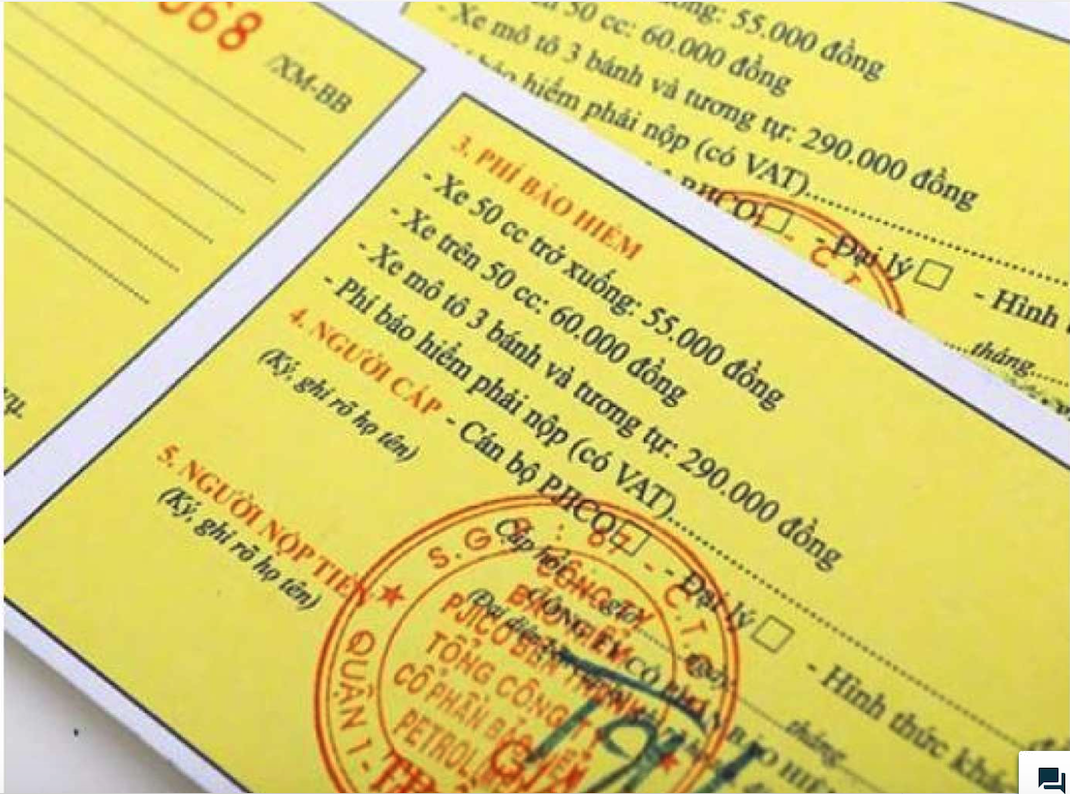 068 /XM-BB
ống: 55.000 đồng
50 cc: 60.000 đồng
- Xe mô tô 3 bánh và tương tự: 290.000 đồng
bảo hiểm phải nộp (có VAT)
PJICO □ - Đại lý □ - Hình
tháng
3. PHÍ BẢO HIỂM
- Xe 50 cc trở xuống: 55.000 đồng
- Xe trên 50 cc: 60.000 đồng
- Xe mô tô 3 bánh và tương tự: 290.000 đồng
- Phí bảo hiểm phải nộp (có VAT)
4. NGƯỜI CẤP - Cán bộ PJICO □ - Đại lý □ - Hình thức khác
(Ký, ghi rõ họ tên)
Cấp hồi giờ
tháng
5. NGƯỜI NỘP TIỀN
(Ký, ghi rõ họ tên)
CÔNG TY
BẢO HIỂM
PJICO BẾN THÀNH
TỔNG CÔNG TY
CỔ PHẦN BẢO HIỂM
PETROLIMEX
QUẬN 1 -